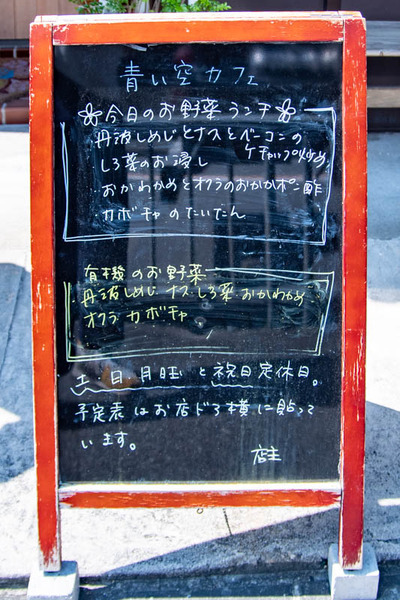 青い空カフェ
今日のお野菜ランチ
丹波しめじとナスとベーコンの
ケチャップ炒め
しろ菜のお浸し
・おかわかめとオクラのおかかポン酢
・カボチャのたいたん
有機のお野菜
・丹波しめじ ナス しろ菜 おかわかめ
オクラ カボチャ
土、日、月曜と祝日定休日。
予定表はお店ドア横に貼って
います。
店主